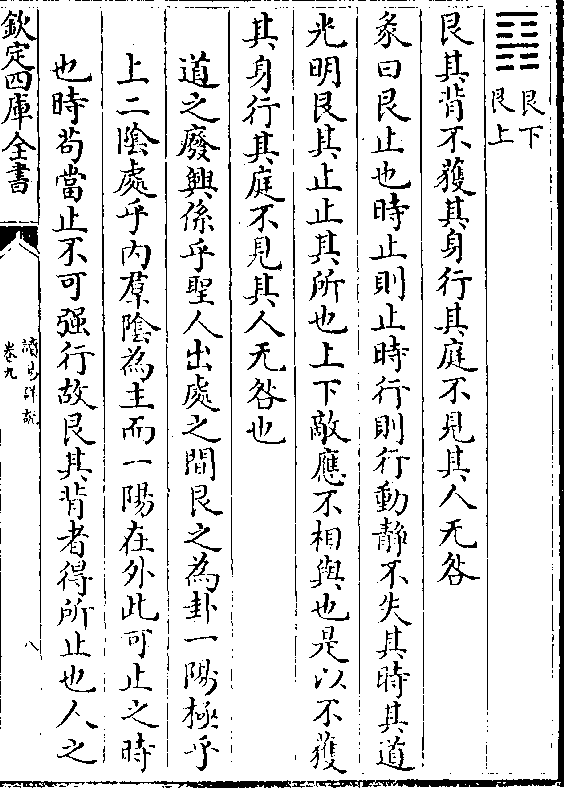 ䷳艮下
艮上
艮其背不獲其身行其庭不見其人无咎
彖曰艮止也時止則止時行則行動靜不失其時其道
光明艮其止止其所也上下敵應不相與也是以不獲
其身行其庭不見其人无咎也
道之廢興係乎聖人出處之間艮之為卦一陽極乎
上二陰處乎内羣陰為主而一陽在外此可止之時
也時茍當止不可强行故艮其背者得所止也人之
欽定四庫全書
讀易詳說
卷九
八